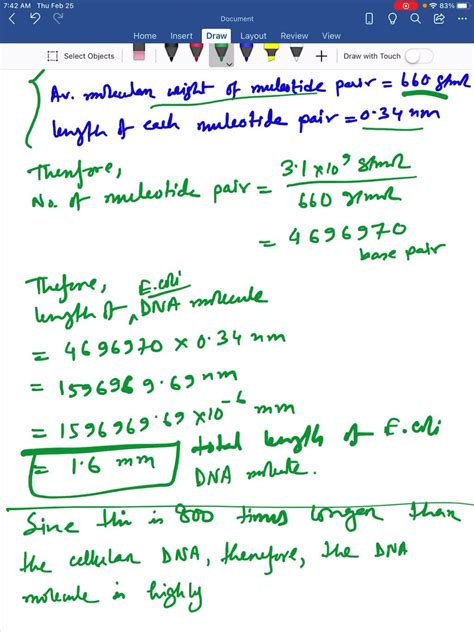 7:42 AM Thu Feb 25
83%
Document
Home Insert Draw Layout Review View
Select Objects
Draw with Touch
Av. molecular weight of nucleotide pair = 660 g/mol
length of each nucleotide pair = 0.34 nm
Therefore,
No. of nucleotide pair = 3.1 × 10⁹ g/mol
660 g/mol
= 4696970
base pair
Thefore,
length of ^ E.coli DNA molecule
= 4696970 × 0.34 nm
= 1596969.69 nm
= 1596969.69 × 10⁻⁶ mm
= 1.6 mm
total length of E.coli
DNA molecule.
Since this is 800 times longer than
the cellular DNA, therefore, the DNA
molecule is highly